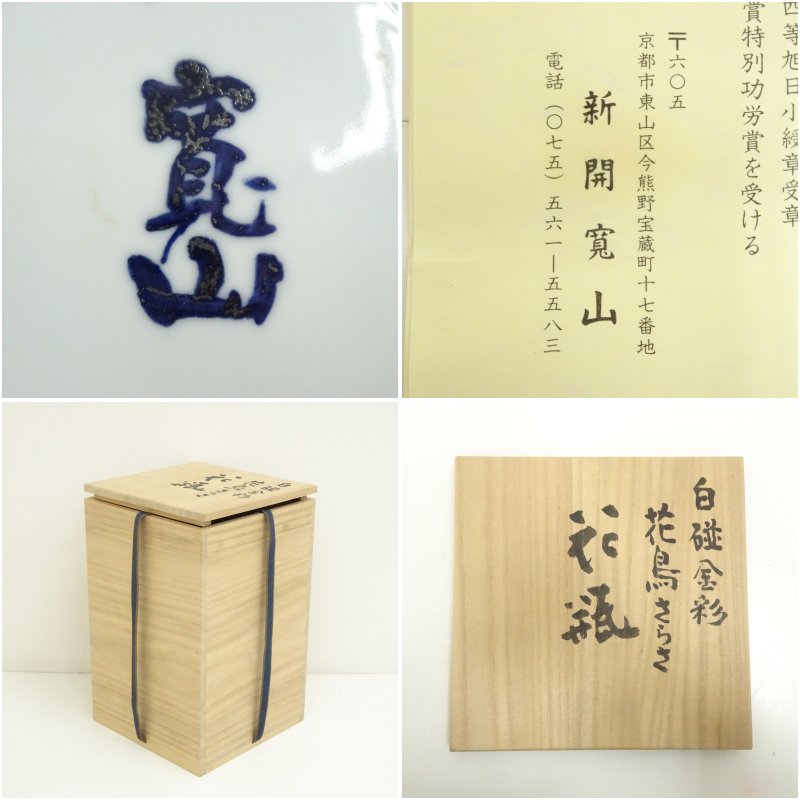 寛山
四等旭日小綬章受章
賞特別功労賞を受ける
〒六〇五
京都市東山区今熊野宝蔵町十七番地
新開寛山
電話(〇七五)五六一―五五八三
白磁金彩
花鳥さらさ
花瓶